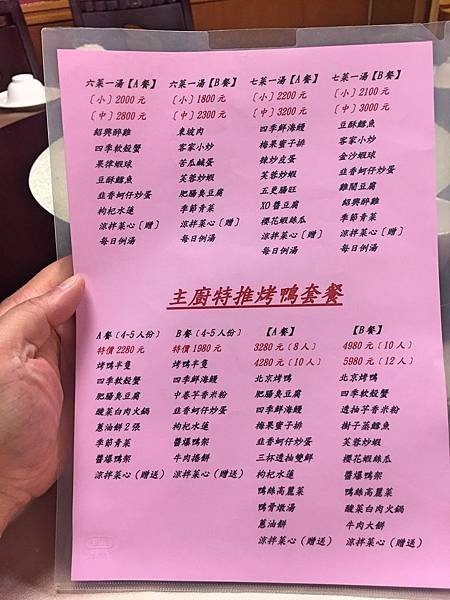 六菜一湯【A餐】
〔小〕2000元
〔中〕2800元
紹興醉雞
四季軟殼蟹
果律蝦球
豆酥鱈魚
韭香蚵仔炒蛋
枸杞水蓮
涼拌菜心〔贈〕
每日例湯
六菜一湯【B餐】
〔小〕1800元
〔中〕2300元
東坡肉
客家小炒
苦瓜鹹蛋
芙蓉炒蝦
肥腸臭豆腐
季節青菜
涼拌菜心〔贈〕
每日例湯
七菜一湯【A餐】
〔小〕2200元
〔中〕3200元
四季鮮海鰻
梅果蜜子排
辣炒皮蛋
芙蓉炒蝦
五更腸旺
XO醬豆腐
櫻花蝦絲瓜
涼拌菜心〔贈〕
每日例湯
七菜一湯【B餐】
〔小〕2100元
〔中〕3000元
豆酥鱈魚
客家小炒
金沙蝦球
韭香蚵仔炒蛋
雞閣豆腐
紹興醉雞
季節青菜
涼拌菜心〔贈〕
每日例湯
主廚特推烤鴨套餐
A餐〔4-5人份〕
特價2280元
烤鴨半隻
四季軟殼蟹
肥腸臭豆腐
酸菜白肉火鍋
蔥油餅2張
季節青菜
醬爆鴨架
涼拌菜心（贈送）
B餐〔4-5人份〕
特價1980元
烤鴨半隻
四季鮮海鰻
中卷芋香米粉
韭香蚵仔炒蛋
季節青菜
醬爆鴨架
牛肉捲餅
涼拌菜心（贈送）
【A餐】
3280元〔8人〕
4280元〔10人〕
北京烤鴨
肥腸臭豆腐
四季鮮海鰻
梅果蜜子排
韭香蚵仔炒蛋
三杯透抽雙鮮
枸杞水蓮
鴨絲高麗菜
鴨骨燉湯
蔥油餅
涼拌菜心（贈送）
【B餐】
4980元〔10人〕
5980元〔12人〕
北京烤鴨
四季軟殼蟹
透抽芋香米粉
樹子蒸鱈魚
芙蓉炒蝦
櫻花蝦絲瓜
醬爆鴨架
鴨絲高麗菜
酸菜白肉火鍋
牛肉大餅
涼拌菜心（贈送）